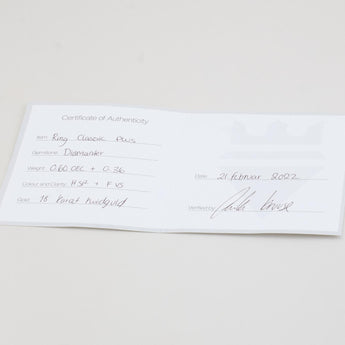 Certificate of Authenticity
Item: Ring Classic Plus
Gemstone: Diamanter
Weight: 0.60 OEC + 0.36
Colour and Clarity: H SI² + F VS
Gold: 18 Karat
Date: 21 februar 2022
Verified by: